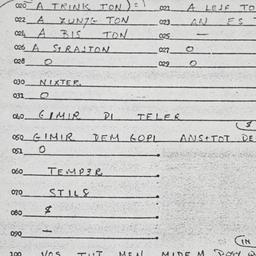 020 A TRINK TON) = ! 021 A LEJF TO
022 A ZUNJG TON 023 AN ES T
024 A BIS TON 025 —
026 A STRASTON 027 O
028 O 029 O
030 NIXTER
031 O
040 GIMIR DI TELER
050 GIMIR DEM GOPL ANSTOT DE
051 O
060 TEMP3R
070 STILS
080 $
090 — (IN
100 VOS TUT MEN MIDEM